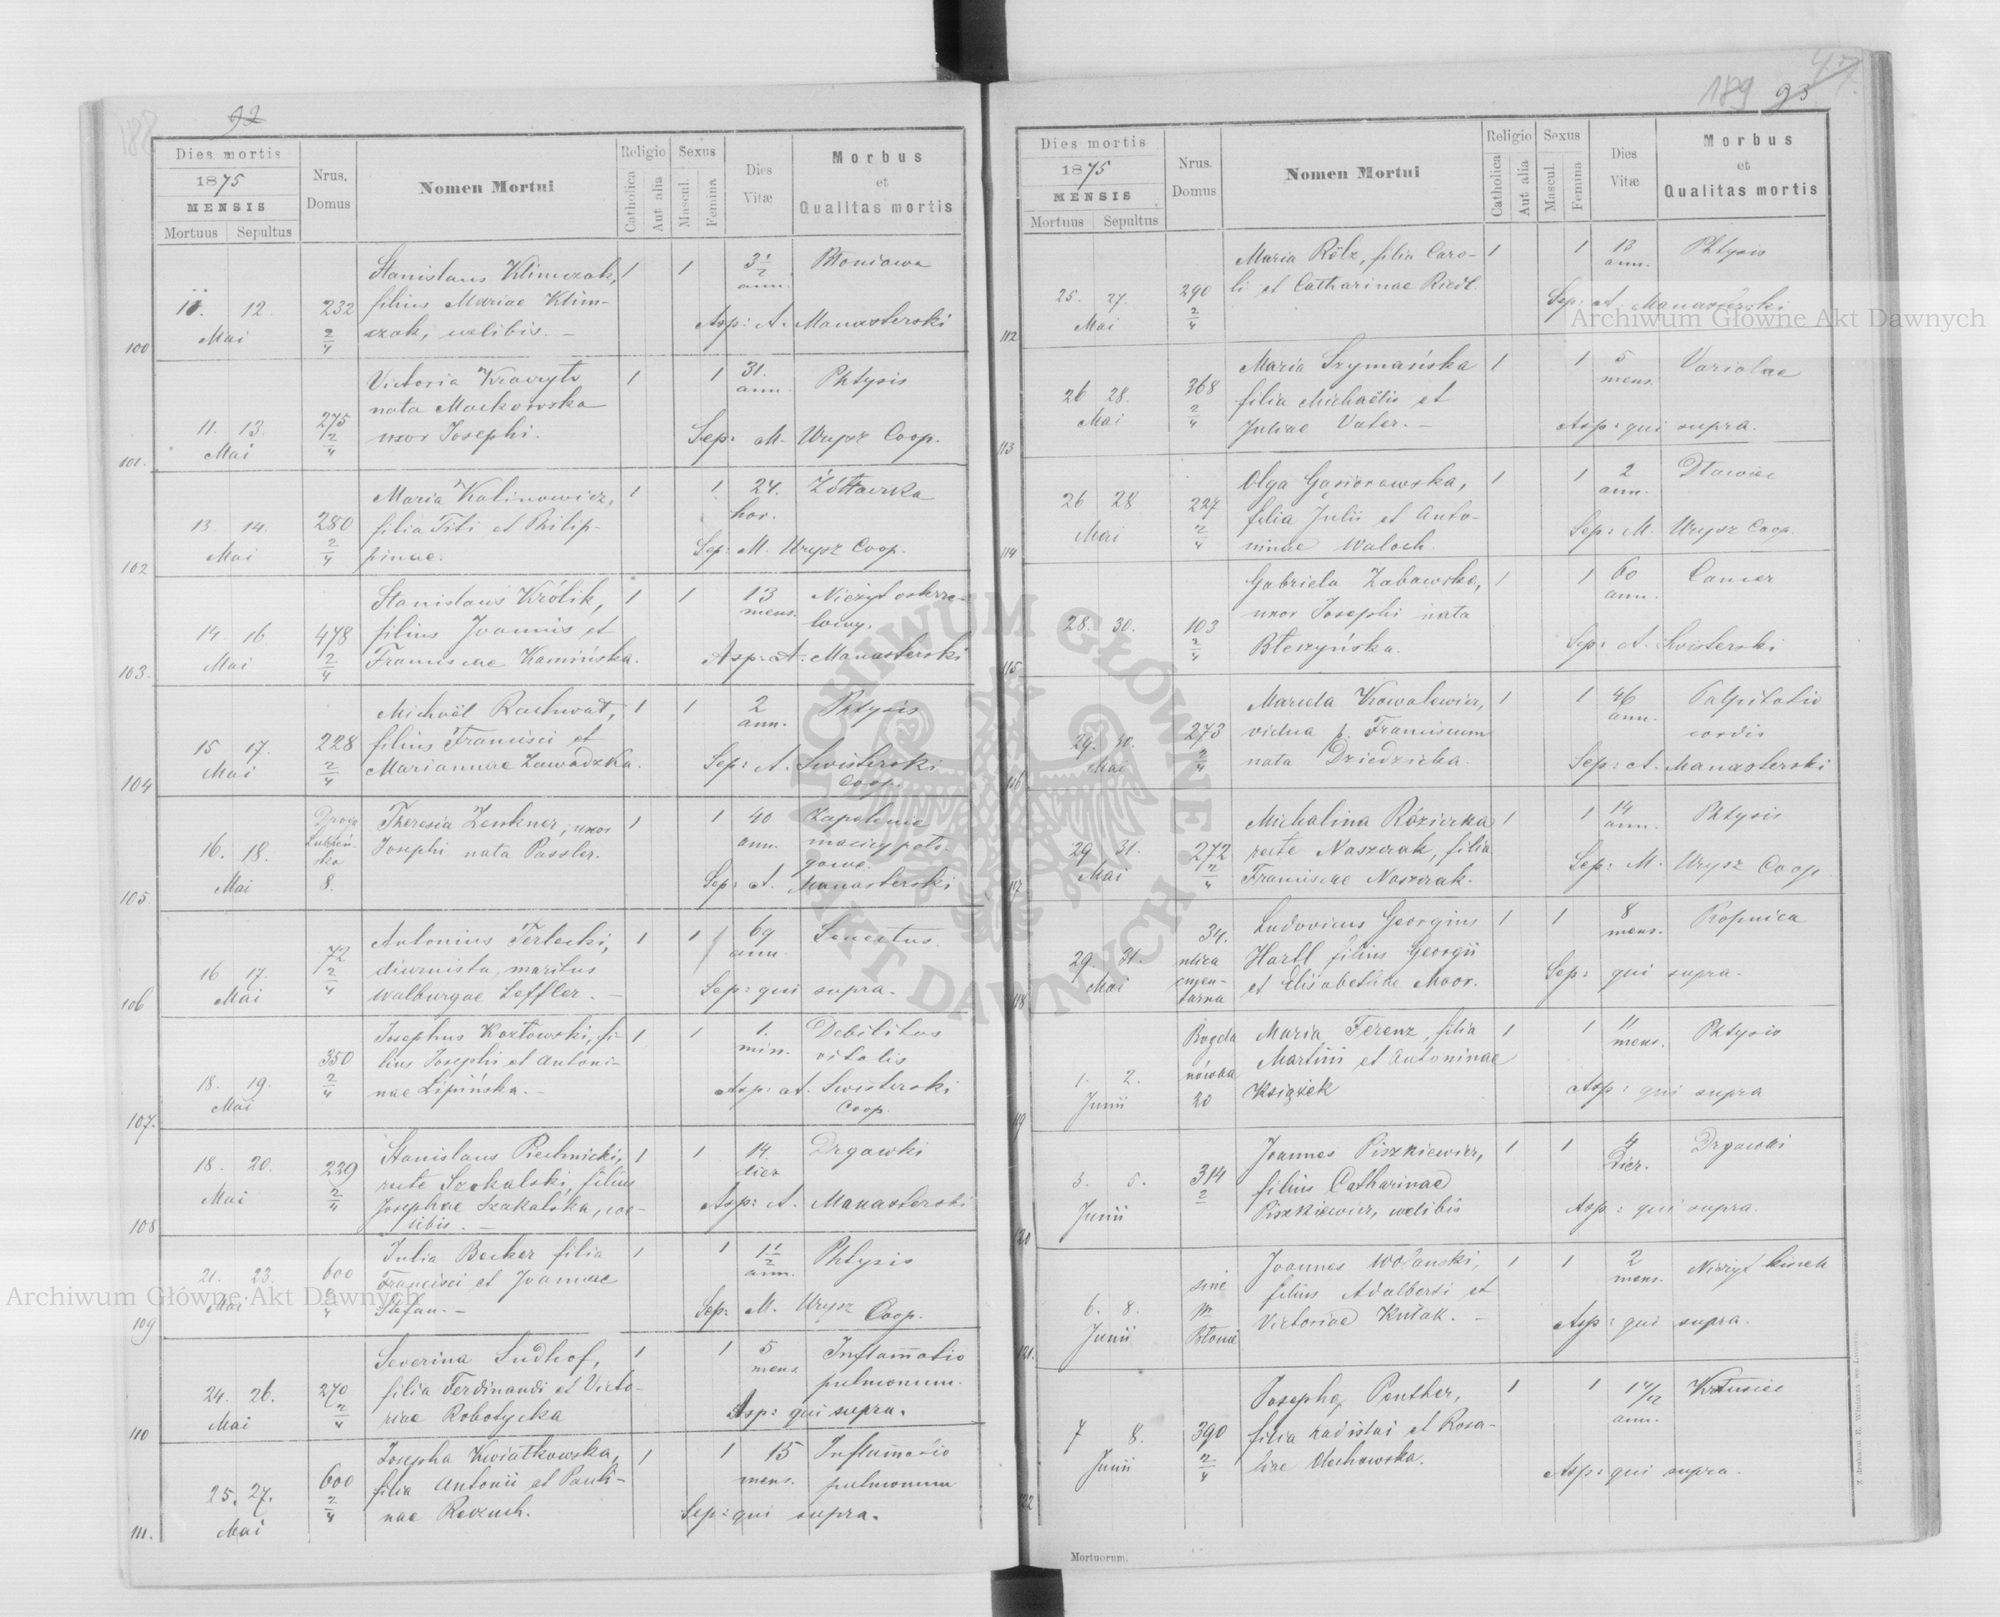 92
Dies mortis
1875
MENSIS
Mortuus Sepultus
Nrus. Domus
Nomen Mortui
Religio
Catholica
Aut alia
Sexus
Mascul.
Femina
Dies Vitæ
Morbus et Qualitas mortis
Stanislaus Klimczak, 1 1 3 1/2 ann. Błoniowa
11. 12. 232 filius Mariae Klim-
Mai 2/4 czak, celibis. – Asp: A. Manasterski
100
Victoria Krawzyk 1 1 31. ann. Phtysis
275 nata Mackowska
11. 13. 2/4 uxor Josephi. Sep: M. Urysz Coop.
Mai
101.
Maria Kalinowicz, 1 1 24. hor. Żółtaczka
13 14. 280 filia Titi et Philip-
Mai 2/4 pinae. Sep: M. Urysz Coop.
102
Stanislaus Królik, 1 1 13 mens. Nieżyt oskrze-
14. 16 478 filius Joannis et lowy.
Mai 2/4 Franciscae Kamińska. Asp: A. Manasterski
103.
Michaël Rachwał, 1 1 2 ann. Phtysis
15 17. 228 filius Francisci et
Mai 2/4 Mariannae Zawadzka. Sep: A. Swisterski
Coop.
104
Droga Theresia Zenkner, uxor 1 1 40 ann. Zapalenie
16. 18. Josephi nata Passler. macicy poło-
Mai 8. gowe
Sep: A. Manasterski
105.
Antonius Terlecki, 1 1 69 ann. Senectus.
72 diurnista, maritus
16 17. 2/4 Walburgae Leffler. – Sep: qui supra.
Mai
106
Josephus Kozłowski, fi- 1 1 1. min. Debilitas
350 lius Josephi et Antoni- vitalis
18. 19. 2/4 nae Lipińska. – Asp: A. Swisterski
Mai Coop.
107.
Stanislaus Piechnicki, 1 1 14. dies Drgawki
18. 20. 229 recte Szakalski, filius
Mai 2/4 Josephae Szakalska, coe-
libis. – Asp: A. Manasterski
108
Julia Becker filia 1 1 1 1/2 ann. Phtysis
21. 23. 600 Francisci et Joannae
Mai 2/4 Stefan. – Sep: M. Urysz Coop.
109
Severina Sudhof, 1 1 5 mens Inflamatio
24. 26. 270 filia Ferdinandi et Victo- pulmonum.
Mai 2/4 riae Robotycka Asp: qui supra.
110
Josepha Kwiatkowska, 1 1 15 mens. Inflamatio
25. 27. 600 filia Antonii et Pauli- pulmonum
Mai 2/4 nae Sep: qui supra.
111.
189 93
Dies mortis
1875
MENSIS
Mortuus Sepultus
Nrus. Domus
Nomen Mortui
Religio
Catholica
Aut alia
Sexus
Mascul.
Femina
Dies Vitæ
Morbus et Qualitas mortis
Maria Rölz, filia Caro- 1 1 13 ann. Phtysis
25. 27. 290 li et Catharinae Riedl.
Mai 2/4 Sep: A. Manasterski
112
Maria Szymańska 1 1 5 mens. Variolae
26 28. 368 filia Michaëlis et
Mai 2/4 Juliae Vater. – Asp: qui supra.
113
Olga Gąsiorowska, 1 1 2 ann. Dławiec
26 28 227 filia Julii et Anto-
Mai 2/4 ninae Waloch. Sep: M. Urysz Coop.
114
Gabriela Zabawska, 1 1 60 ann. Cancer
28. 30. 103 uxor Josephi nata
2/4 Błeszyńska. Sep: A. Swisterski
115
Marcela Kowalewicz, 1 1 46 ann. Palpitatio
29. 30. 273 vidua p. Franciscum cordis
Mai 2/4 nata Dziedzicka. Sep: A. Manasterski
116
Michalina Rózicka 1 1 14 ann. Phtysis
29 31. 272 recte Naszczak, filia
Mai 2/4 Franciscae Naszczak. Sep: M. Urysz Coop.
117
34. Ludovicus Georgius 1 1 8 mens. Ropnica
29. 31. ulica Hartl filius Georgii
Mai cmen- et Elisabethae Moor. Sep: qui supra.
tarna
118
Bogda Maria Ferenz, filia 1 1 11 mens. Phtysis
1. 2. nówka Martini et Antoninae
Junii 20 Książek Asp: qui supra
119
Joannes Piszkiewicz, 1 1 4 dier. Drgawki
3. 5. 314 filius Catharinae
Junii 2 Piszkiewicz, celibis Asp: qui supra.
120
Joannes Wolanski, 1 1 2 mens. Nieżyt kiszek
6. 8. sine filius Adalberti et
Junii № Victoriae Kułak. – Asp: qui supra.
Błonie
121.
Josepha Penther, 1 1 1 4/12 ann. Krtusiec
7 8. 390 filia Ladislai et Rosa-
Junii 2/4 liae Olechowska. Asp: qui supra.
122
Mortuorum.
Archiwum Główne Akt Dawnych
Archiwum Główne Akt Dawnych
ARCHIWUM GŁÓWNE AKT DAWNYCH